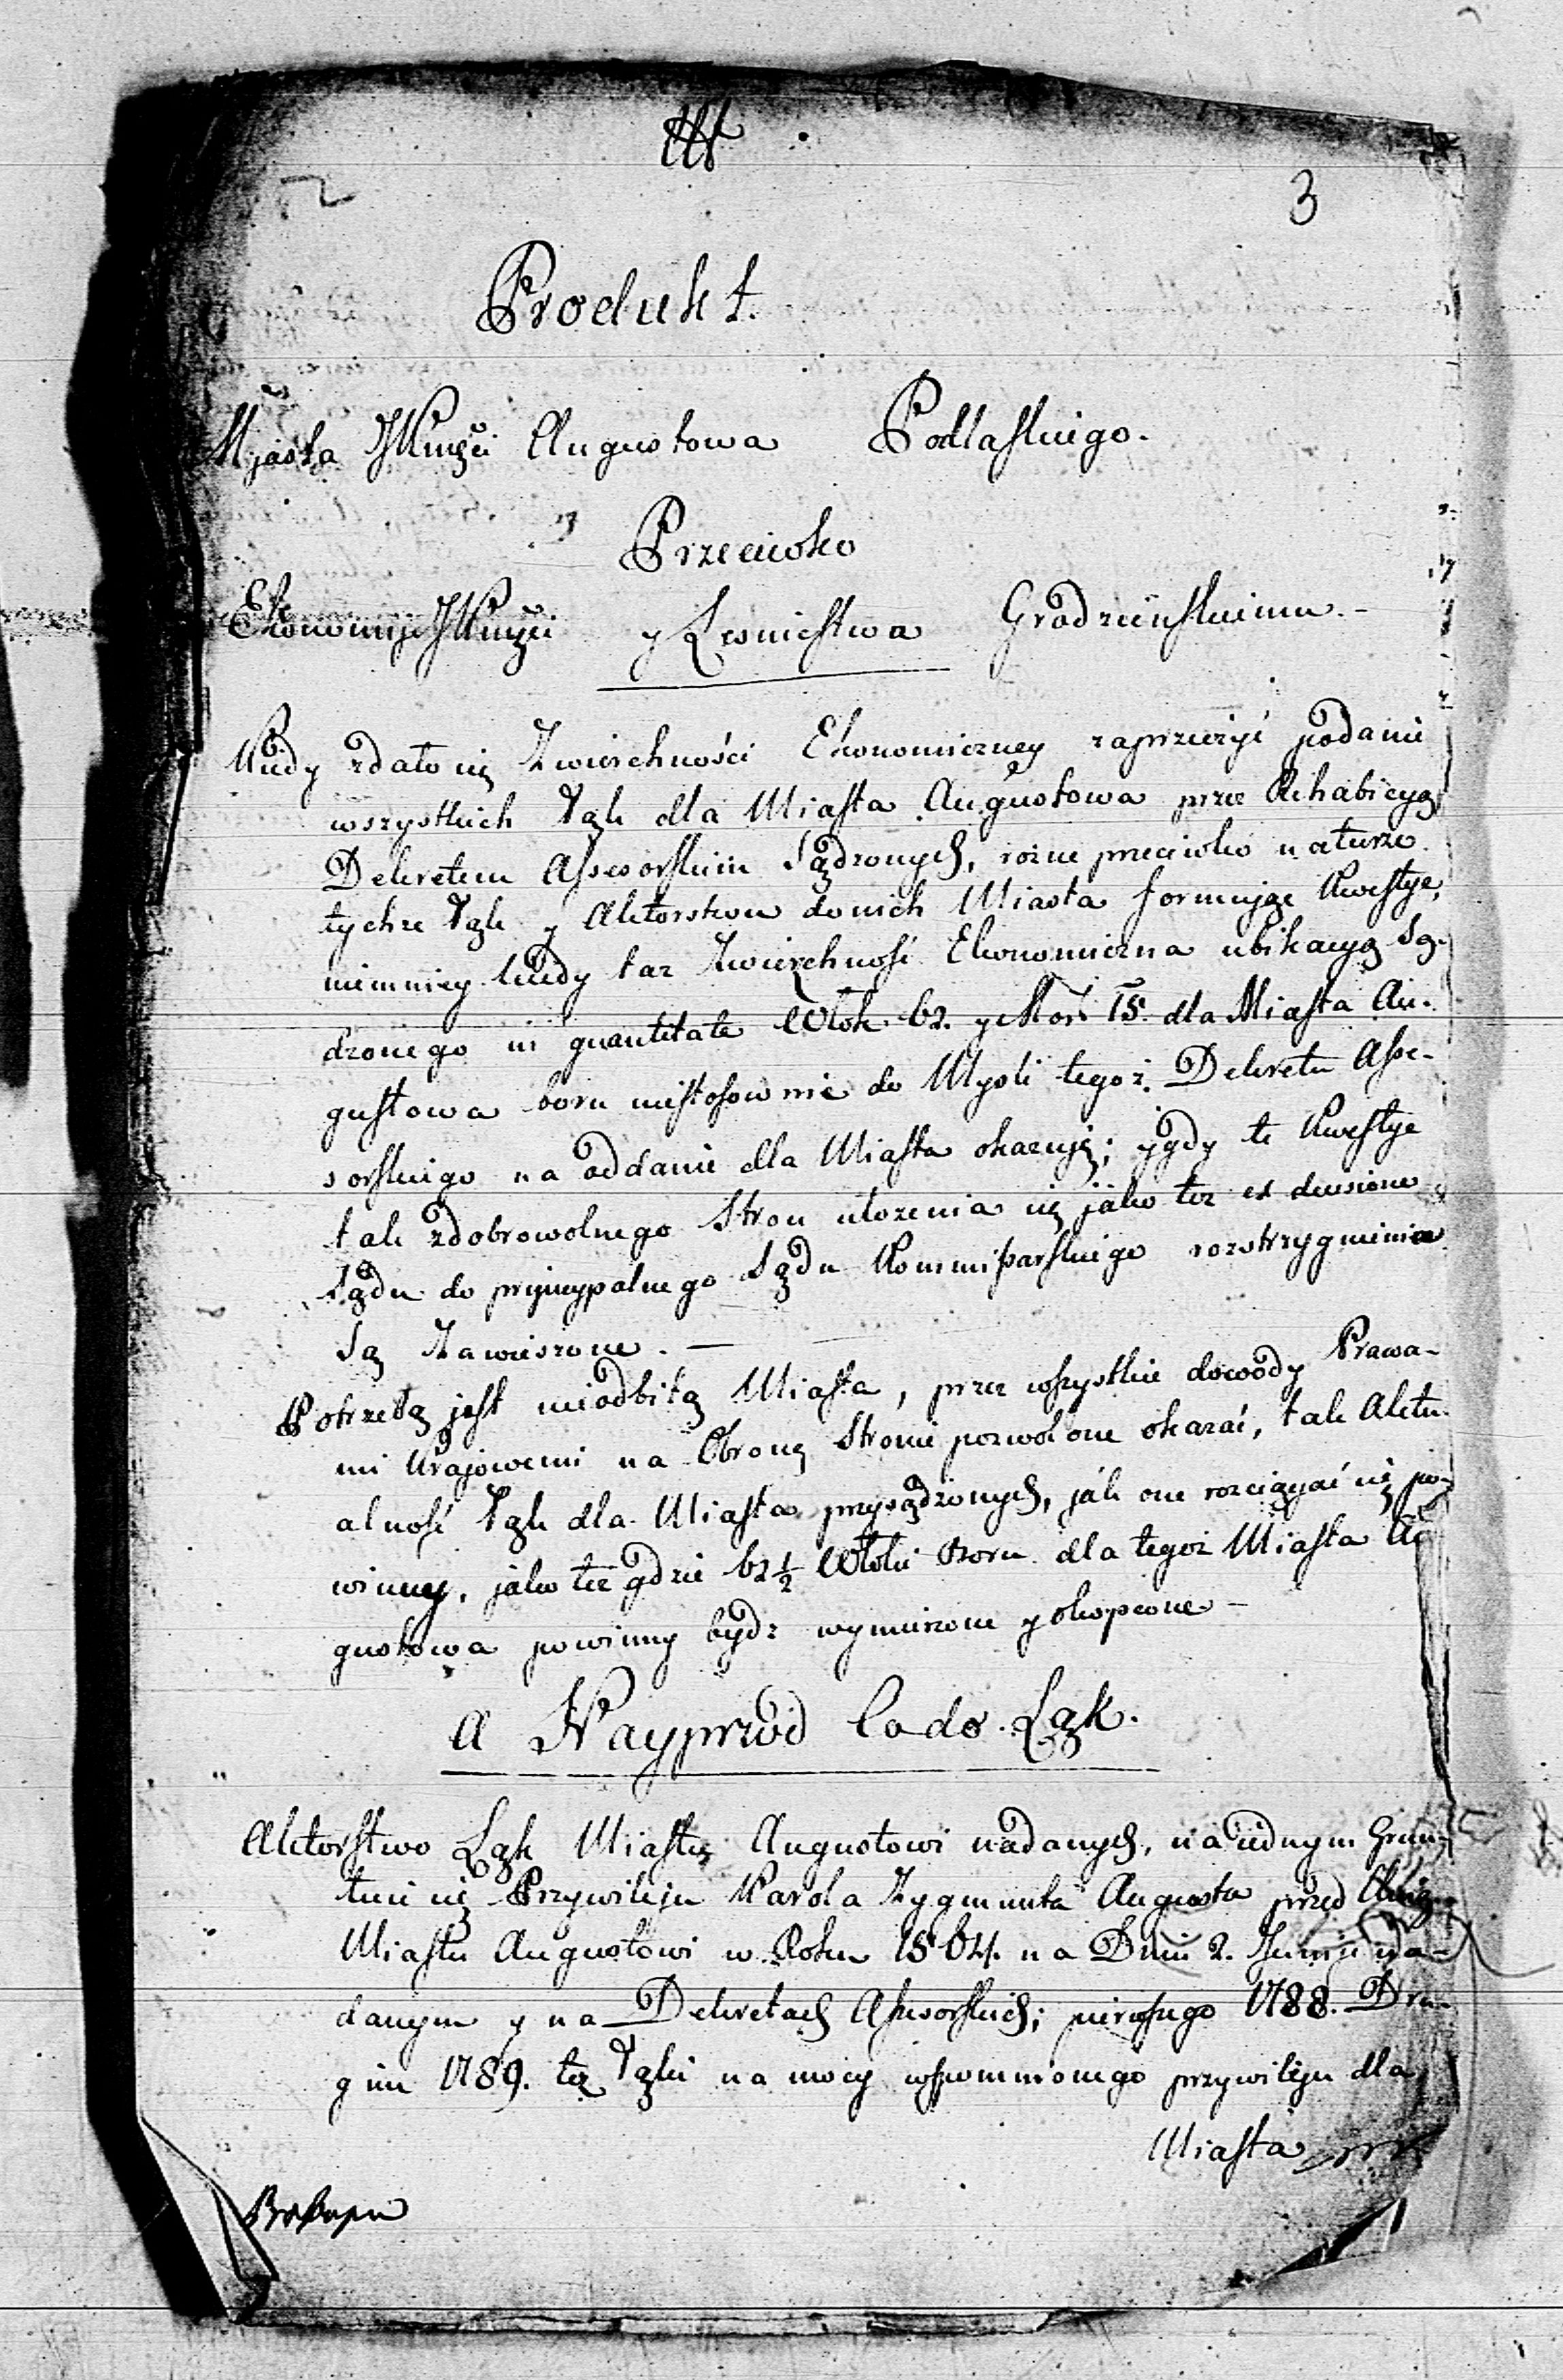 3
Produkt.
Miasta JKMłści Augustowa Podlaskiego.
Przeciwko
Ekonomije JKMłści y Lesnictwa Grodzieńskiemu.-
Kiedy zdało się Zwierchności Ekonomiczney zaprzeżyć podanie
wszystkich Łąk dla Miasta Augustowa prze Rehabicyą
Dekretem Assesorskim Sądzonych, rożne przeciwko naturze
tychże Łąk y Aktorstwu do nich Miasta formując Kwestye,
niemniey kiedy taz Zwierzchność Ekonomiczna ubikacyą Są-
dzonego in quantitate Włok 62. y Mor. 15. dla Miasta Au-
gustowa boru niestosownie do Mysli tegoż Dekretu Asse-
sorskiego na oddanie dla Miasta okazuję; y gdy te Kwestye
tak zdobrowolnego Stron ułożenia się jako też ex decisione
Sądu do pryncypalnego Sądu Kommissarskiego rozstrzygnienia
Są Zawieszone. —
Potrzebą jest nieodbitą Miasta, prze wszystkie dowody Prawa-
mi Krajowemi na Obronę Stronie pozwolone okazać, tak Aktu-
alność Łąk dla Miasta przysądzonych, jak one rozciągać się po-
winny, jako też gdzie 62½ Włoki Boru dla tegoż Miasta Au
gustowa powinny bydź wymierzone y okopcone -
A Nayprzód Co do Łąk.
Aktorstwo Łąk Miastu Augustowi nadanych, na iednym Grun-
tuie się Przywileju Karola Zygmunta Augusta przed
Miastu Augustowi w Roku 1564. na Dniu 2. Junii na-
danym y na Dekretach Assesorskich; pierwszego 1788. Dru-
gim 1789. tę Łąki na mocy wspomnionego przywileju dla
Miasta